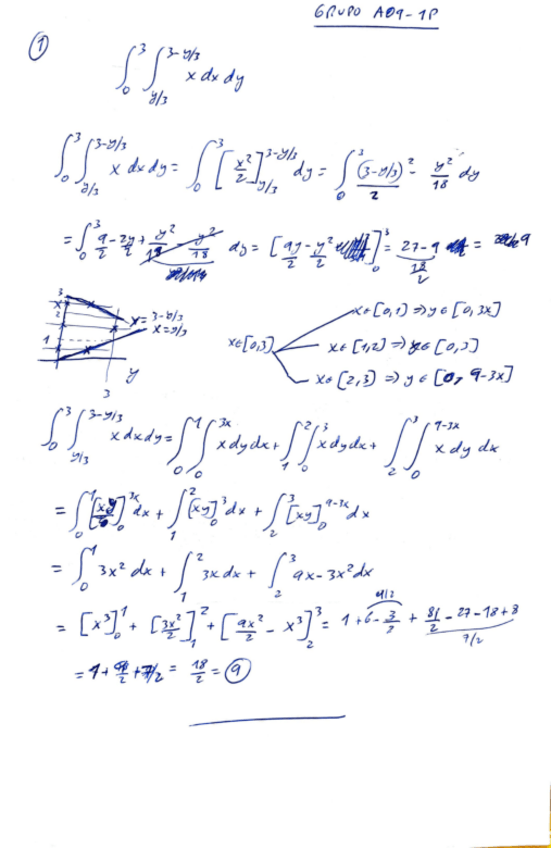 GRUPO A09-1P
①
∫₀³ ∫_{y/3}^{3-y/3} x dx dy
∫₀³ ∫_{y/3}^{3-y/3} x dx dy = ∫₀³ [x²/2]_{y/3}^{3-y/3} dy = ∫₀³ (3-y/3)²/2 - y²/18 dy
= ∫₀³ 9/2 - 2y/2 + y²/18 - y²/18 dy = [9y/2 - y²/2]₀³ = 27-9/2 = 9
3
2
1
x = 3-y/3
x = y/3
3
y
x∈[0,3]
x∈[0,1] ⇒ y∈[0,3x]
x∈[1,2] ⇒ y∈[0,3]
x∈[2,3] ⇒ y∈[0, 9-3x]
∫₀³ ∫_{y/3}^{3-y/3} x dx dy = ∫₀¹ ∫₀^{3x} x dy dx + ∫₁² ∫₀³ x dy dx + ∫₂³ ∫₀^{9-3x} x dy dx
= ∫₀¹ [xy]₀^{3x} dx + ∫₁² [xy]₀³ dx + ∫₂³ [xy]₀^{9-3x} dx
= ∫₀¹ 3x² dx + ∫₁² 3x dx + ∫₂³ 9x-3x² dx
= [x³]₀¹ + [3x²/2]₁² + [9x²/2 - x³]₂³ = 1 + 6 - 3/2 + 81/2 - 27 - 18 + 8
9/2
7/2
= 1 + 9/2 + 7/2 = 18/2 = 9